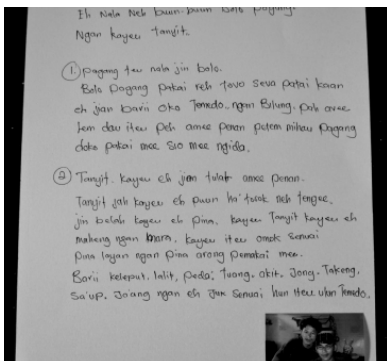 Eh Nala Neh buun-buun bolo pagang.
Ngan kayeu Tanyit.
1. Pagang teu nala jin bolo.
Bolo pagang pakai neh tovo seva patai kaan
eh jian barii oko Tenedo. ngan Bilung. pah avee
lem dau iteu peh amee penan petem mihau pagang
doko pakai mee sio mee ngida.
2. Tanyit. kayeu eh jian tulat amee penan.
Tanyit jah kayeu eh puun ha' torok neh tengee.
jin belah kayeu eh pina. kayeu Tanyit kayeu eh
maheng ngan bara. kayeu iteu omok senuai
pina layan ngan pina arong pemakai mee.
Barii keleput. lalit, peda, tuang. akit. Jong. Takeng.
Sa'up. Jo'ang ngan eh juk senuai hun iteu ulan Tenedo.